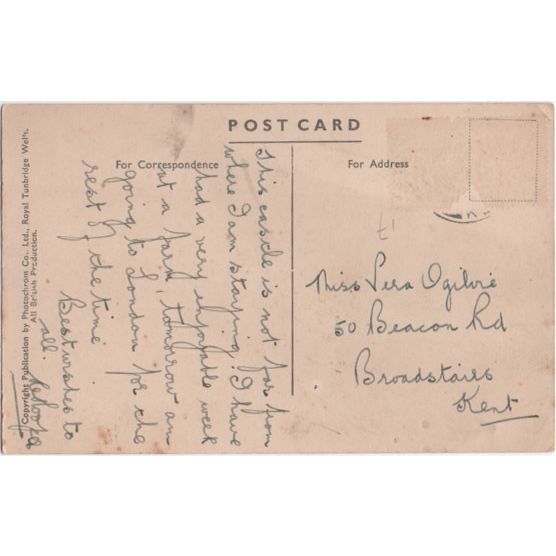 POST CARD
For Correspondence
For Address
This castle is not far from
where I am staying. I have
had a very enjoyable week
at a farm, tomorrow am
going to London for the
rest of the time
Best wishes to
all.
Miss Vera Ogilvie
50 Beacon Rd
Broadstairs
Kent
Copyright Publication by Photochrom Co., Ltd., Royal Tunbridge Wells.
All British Production.